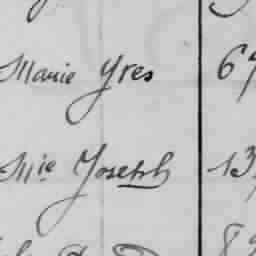 Marie Yves 67
Mie Joseph 13